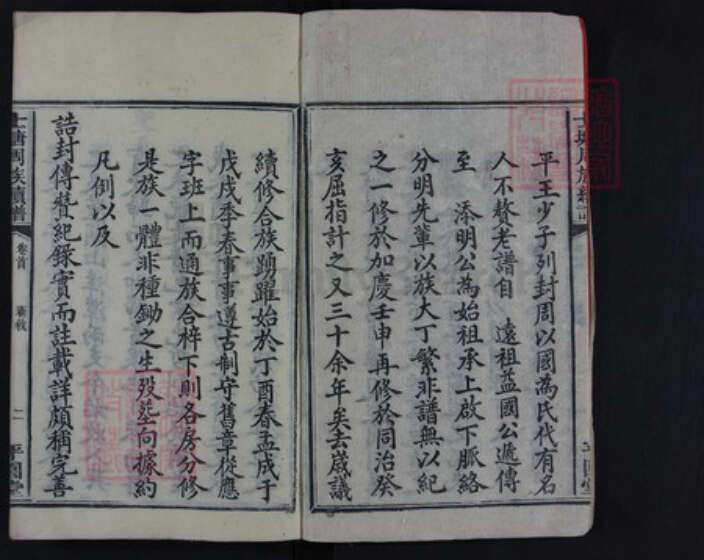 平王少子列封周以國為氏代有名
人不贅老譜自 遠祖益國公遞傳
至 添明公為始祖承上啟下脈絡
分明先輩以族大丁繁非譜無以紀
之一修於加慶壬申再修於同治癸
亥屈指計之又三十余年矣去歲議
續修合族踴躍始於丁酉春孟成于
戊戌季春事事遵古制守舊章從應
字班上而通族合梓下則各房分修
是族一體非種鋤之生歿塟向據約
凡例以及
誥封傳贊紀錄實而註載詳頗稱完善
上塘周族續譜 卷首 二 平園堂